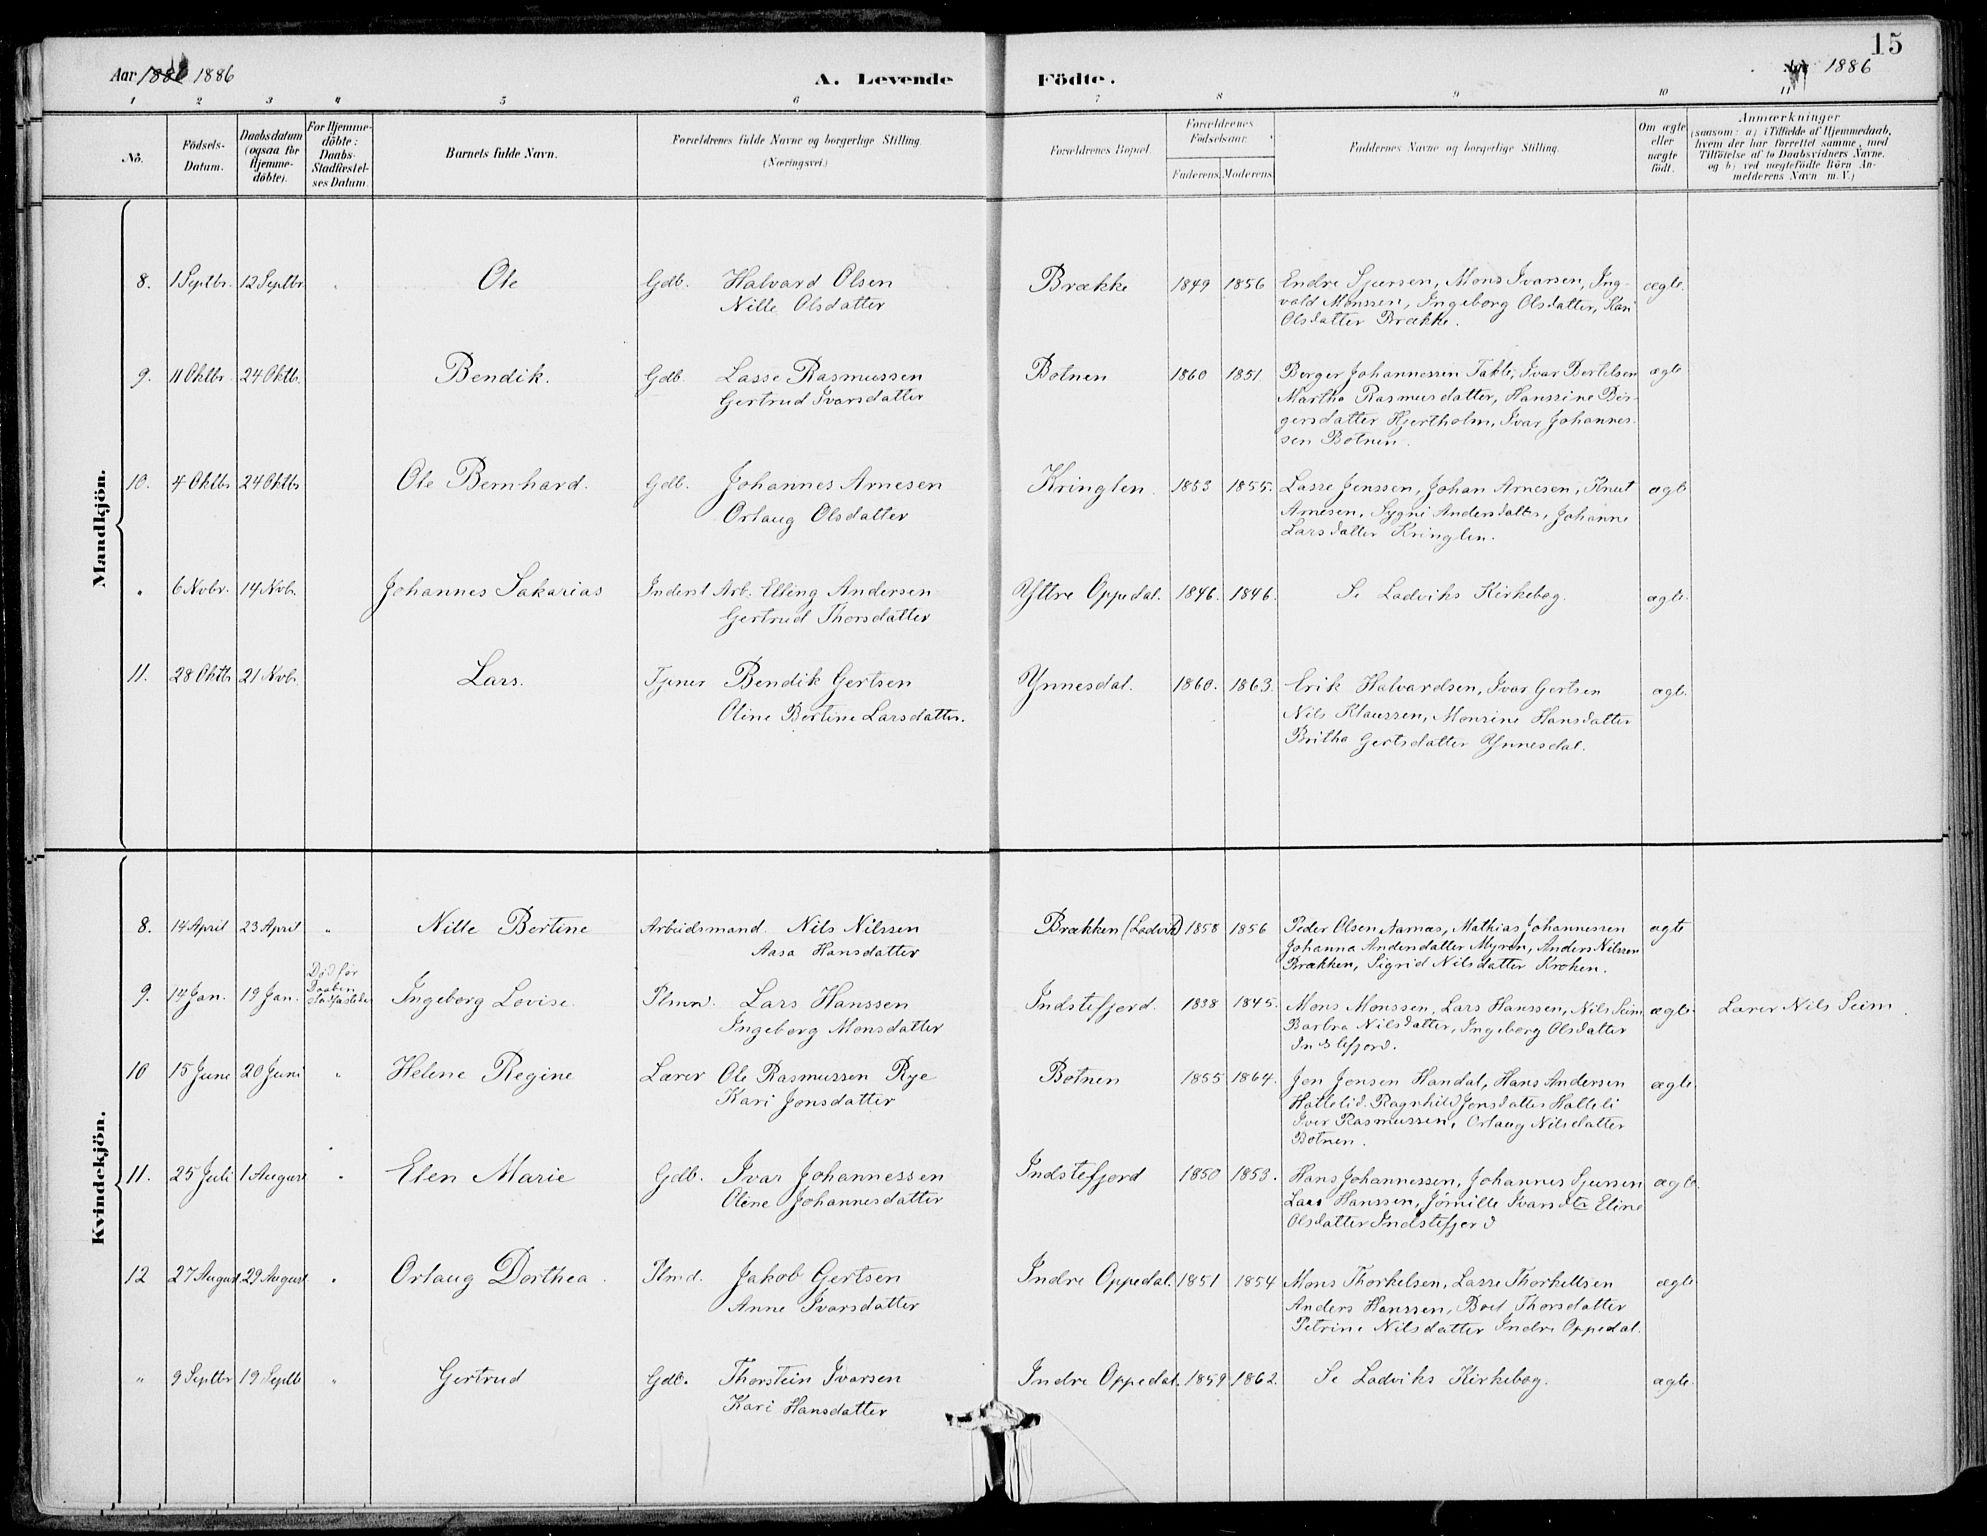 15
Aar 1886 1886
A. Levende Födte.
Aar 1886
1 2 3 4 5 6 7 8 9 10 11
Nö.
Födsels-
Datum.
Daabsdatum
(ogsaa for
Hjemme-
döbte).
For Hjemme-
döbte:
Daabs-
Stadfæstel-
ses Datum.
Barnets fulde Navn.
Forældrenes fulde Navne og borgerlige Stilling.
(Næringsvei.)
Forældrenes Bopæl.
Forældrenes
Födselsaar.
Faderens. Moderens.
Faddernes Navne og borgerlige Stilling.
Om ægte
eller
uægte
födt.
Anmærkninger
(saasom: a) i Tilfælde af Hjemmedaab,
hvem der har forrettet samme, med
Tilföielse af to Daabsvidners Navne,
og b) ved uægtefödte Börn An-
melderens Navn m. V.)
Mandkjön.
8. 1 Septbr. 12 Septbr. " Ole Gdb. Halvard Olsen Brække 1849 1856 Endre Sjursen, Mons Ivarsen, Ing- ægte.
Nille Olsdatter vald Monssen, Ingeborg Olsdatter, Kari
Olsdatter Brække.
9. 11 Oktbr. 24 Oktb. Bendik. Gdb. Lasse Rasmussen Botnen 1860 1851. Berger Johannessen Takle, Ivar Bertelsen ægte
Gertrud Ivarsdatter Martha Rasmusdatter, Hansine Bör-
gersdatter Hjertholm, Ivar Johannes-
sen Botnen.
10. 4 Oktbr 24 Oktbr Ole Bernhard. Gdb. Johannes Arnesen Kringlen. 1853 1855. Lasse Jenssen, Johan Arnesen, Knut ægte
Orlaug Olsdatter Arnesen, Sygni Andersdatter, Johanne
Larsdatter Kringlen.
" 6 Novbr. 14 Novb. Johannes Sakarias Inderst Arb. Elling Andersen Yttre Oppedal. 1846. 1846. Se Ladviks Kirkebog. ægte.
Gertrud Thorsdatter
11. 28 Oktb 21 Novb. Lars. Tjener Bendik Gertsen Ynnesdal. 1860. 1863. Erik Halvardsen, Ivar Gertsen ægte.
Oline Bertine Larsdatter. Nils Klaussen, Monsine Hansdatter
Britha Gertsdatter Ynnesdal.
Kvindekjön.
8. 14 April 23 April " Nille Bertine Arbeidsmand Nils Nilssen Brækken (Ladvik) 1858 1856 Peder Olsen Aamæs, Mathias Johannessen ægte
Aasa Hansdatter Johanna Andersdatter Myren, Anders Nilssen
Brækken, Sigrid Nilsdatter Kroken.
9. 14 Jan. 19 Jan. Död før
Daaben
Stadfæstelse Ingeborg Lovise. Plmn. Lars Hanssen Indstefjord. 1838 1845. Mons Monssen, Lars Hanssen, Nils Seim ægte Lærer Nils Seim.
Ingeborg Monsdatter Barbra Nilsdatter, Ingeborg Olsdatter
Indstefjord.
10 15 June 20 Juni " Helene Regine Lærer Ole Rasmussen Rye Botnen 1855 1864. Jon Jonsen Handal, Hans Andersen ægte
Kari Jonsdatter Hallelid. Ragnhild Jonsdatter Halleli
Iver Rasmussen, Orlaug Nilsdatter
Botnen.
11. 25 Juli 1 August " Elen Marie Gdb. Ivar Johannessen Indstefjord 1850 1853. Hans Johannessen, Johannes Sjursen ægte.
Oline Johannesdatter Lars Hanssen, Jørnille Ivarsdtr Eline
Olsdatter Indstefjord
12 27 August 29 August " Orlaug Dorthea. Plmd. Jakob Gertsen Indre Oppedal. 1851 1854 Mons Thorkelsen, Lasse Thorkellsen ægte
Anne Ivarsdatter Anders Hanssen, Boel Thorsdatter
Petrine Nilsdatter Indre Oppedal.
" 9 Septbr 19 Septb " Gertrud Gdb. Thorstein Ivarsen Indre Oppedal. 1859 1862. Se Ladviks Kirkebog. ægte.
Kari Hansdatter